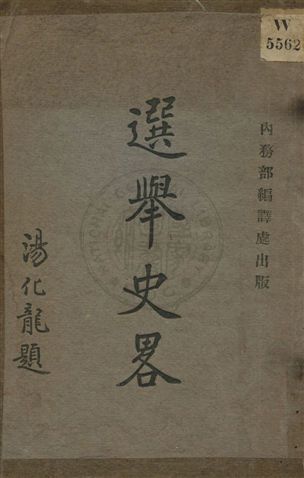 W
5562
內務部編譯處出版
選舉史畧
湯化龍題